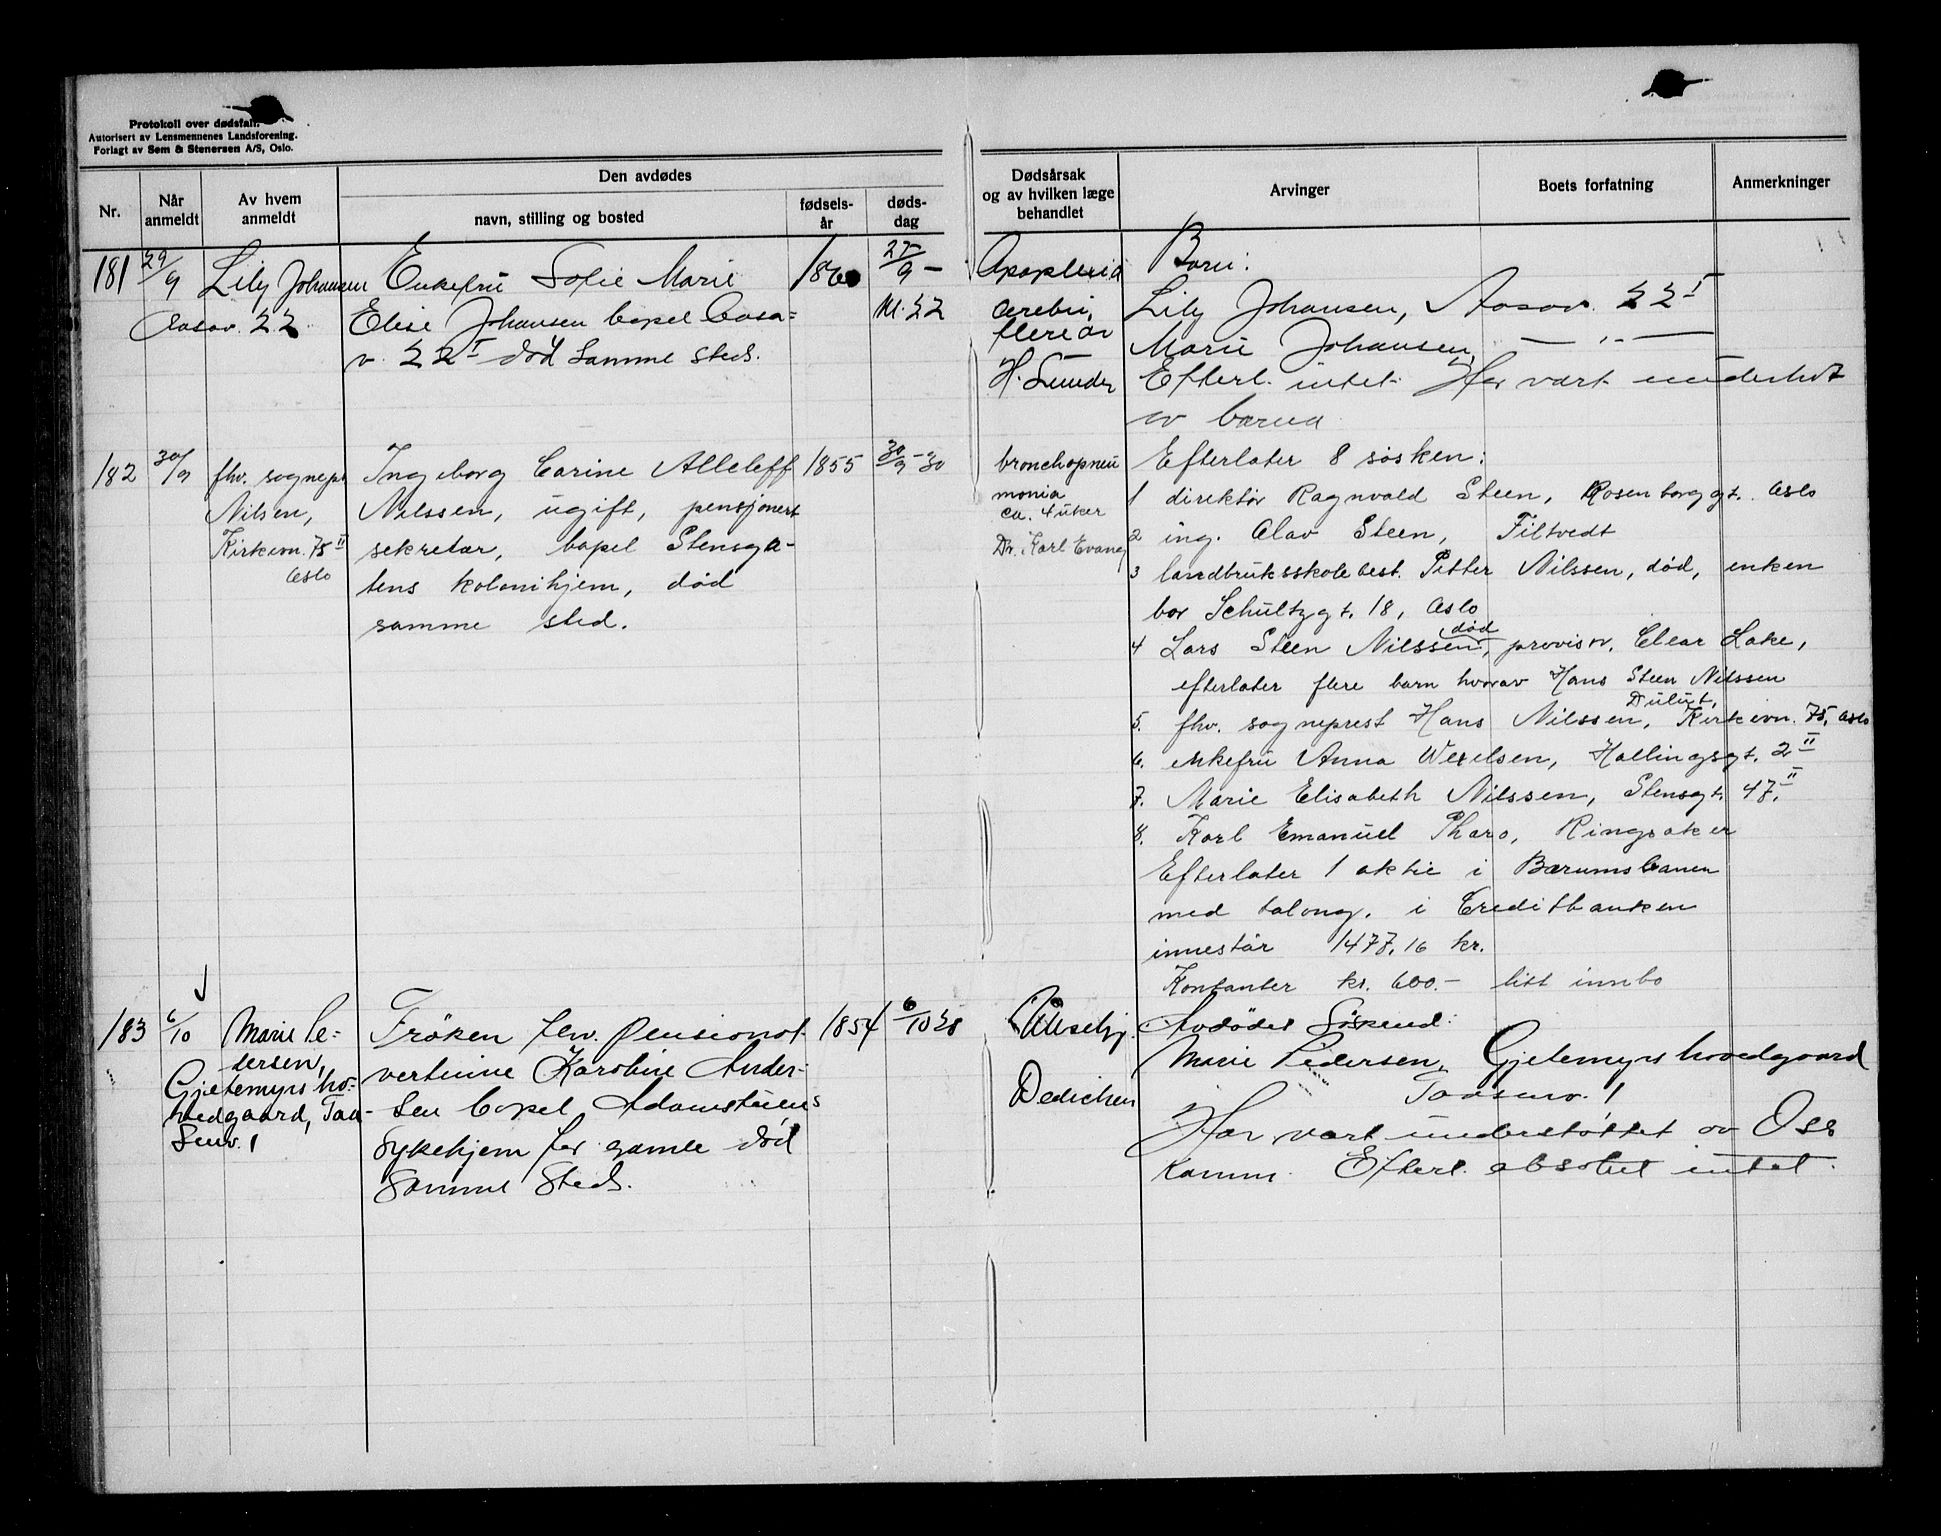 Protokoll over dødsfall.
Autorisert av Lensmennenes Landsforening.
Forlagt av Sem & Stenersen A/S, Oslo.
Nr.
Når anmeldt
Av hvem anmeldt
Den avdødes
navn, stilling og bosted
fødsels-år
døds-dag
Dødsårsak og av hvilken læge behandlet
Arvinger
Boets forfatning
Anmerkninger
181 29/9 Lily Johansen
Aasav. 22
Enkefru Sofie Marie
Elise Johansen bopel Aasa=
v. 22 I død samme sted.
1860
27/9 -
kl. 22
Apoplexia
cerebri,
flere år
H. Sunder
Barn:
Lily Johansen, Aasav. 22 I
Marie Johansen, — " —
Efterl. intet. Har vært underholdt
av barna
182 30/9 fhv. sognepr.
Nilsen,
Kirkevn. 75 II
Oslo
Ingeborg Carine Alleleff
Nilssen, ugift, pensjonert
sekretær, bopel Stensga-
tens kolonihjem, død
samme sted.
1855
30/9 - 30
bronchopneu
monia
ca. 4 uker
Dr. Karl Evang
Efterlater 8 søsken:
1 direktør Ragnvald Steen, Rosenborggt. Oslo
2 ing. Olav Steen, Filtvedt
3 landbruksskolebest. Petter Nilssen, død, enken
bor Schultzgt. 18, Oslo
4 Lars Steen Nilssen, død provisor, Clear Lake,
efterlater flere barn hvorav Hans Steen Nilssen
Dulut,
5. fhv. sogneprest Hans Nilssen, Kirkevn. 75, Oslo
6. enkefru Anna Wexelsen, Hallingsgt. 2 II
7. Marie Elisabeth Nilssen, Stensgt. 47, II
8. Karl Emanuel Pharo, Ringsaker
Efterlater 1 aktie i Bærumsbanen
med talong. i Creditbanken
innestår 1477,16 kr.
Kontanter kr. 600.- litt innbo
183 6/10 Marie Pe=
dersen,
Gjetemyrs ho=
vedgaard, Taa-
senv. 1
Frøken fhv. pensionat
vertinne Karoline Ander-
sen bopel Adamstuens
Sykehjem for gamle død
samme sted.
1854
6/10 38
Dedichen
Avdødes Søskend:
Marie Pedersen, Gjetemyrs hovedgaard
Taasenv. 1
Har vært understøttet av Oslo
komm. Efterl. absolut intet.